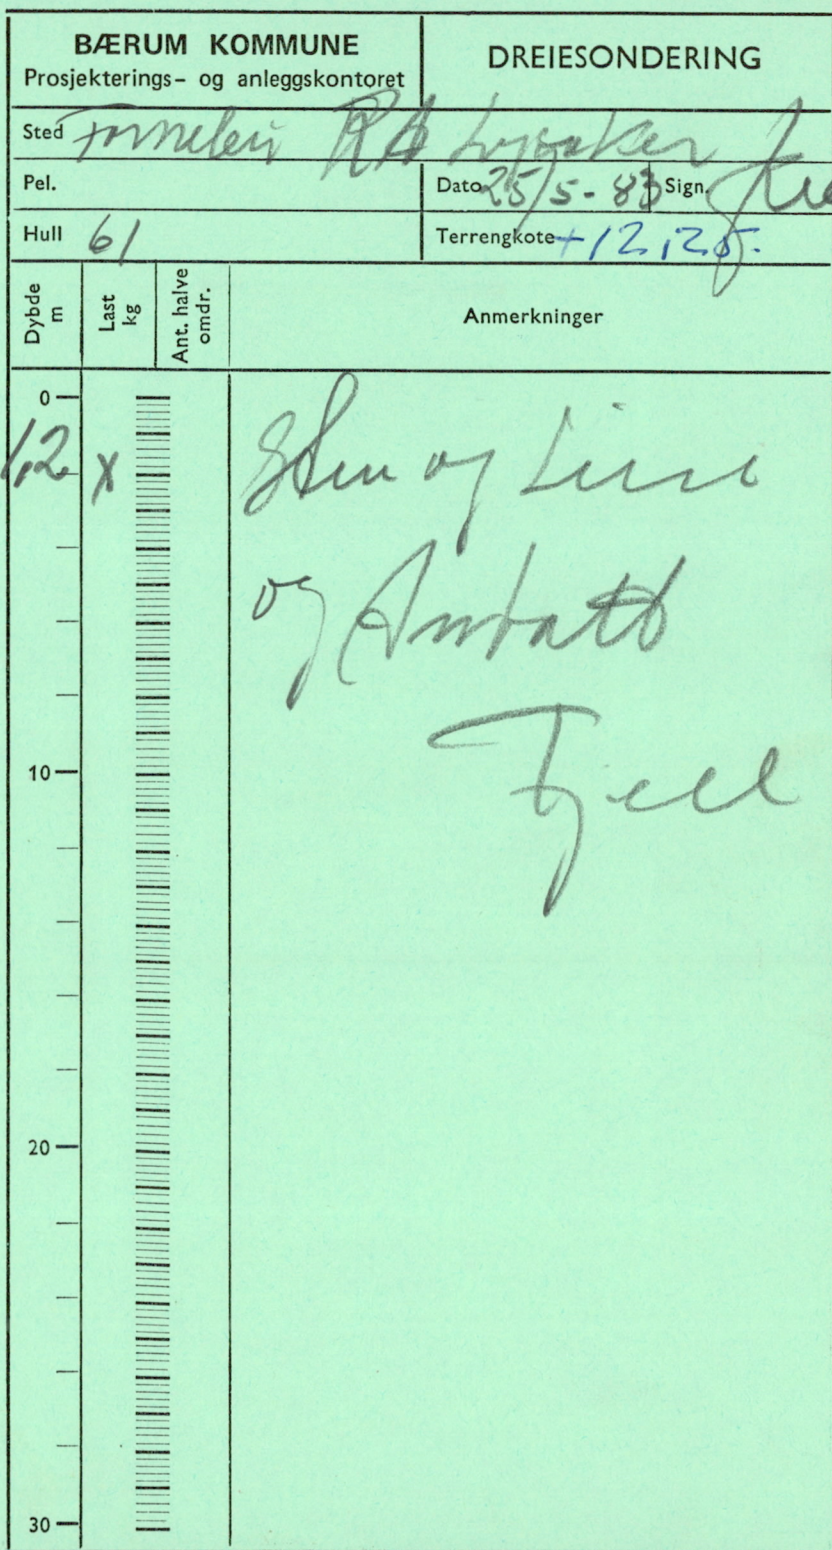 BÆRUM KOMMUNE
Prosjekterings- og anleggskontoret
DREIESONDERING
Sted Fornebu RA Lysaker
Pel.
Dato 25/5-83 Sign.
Hull 61
Terrengkote +12,25.
Dybde m
Last kg
Ant. halve omdr.
Anmerkninger
0
1,2 x
og
og Antatt
Fjell
10
20
30